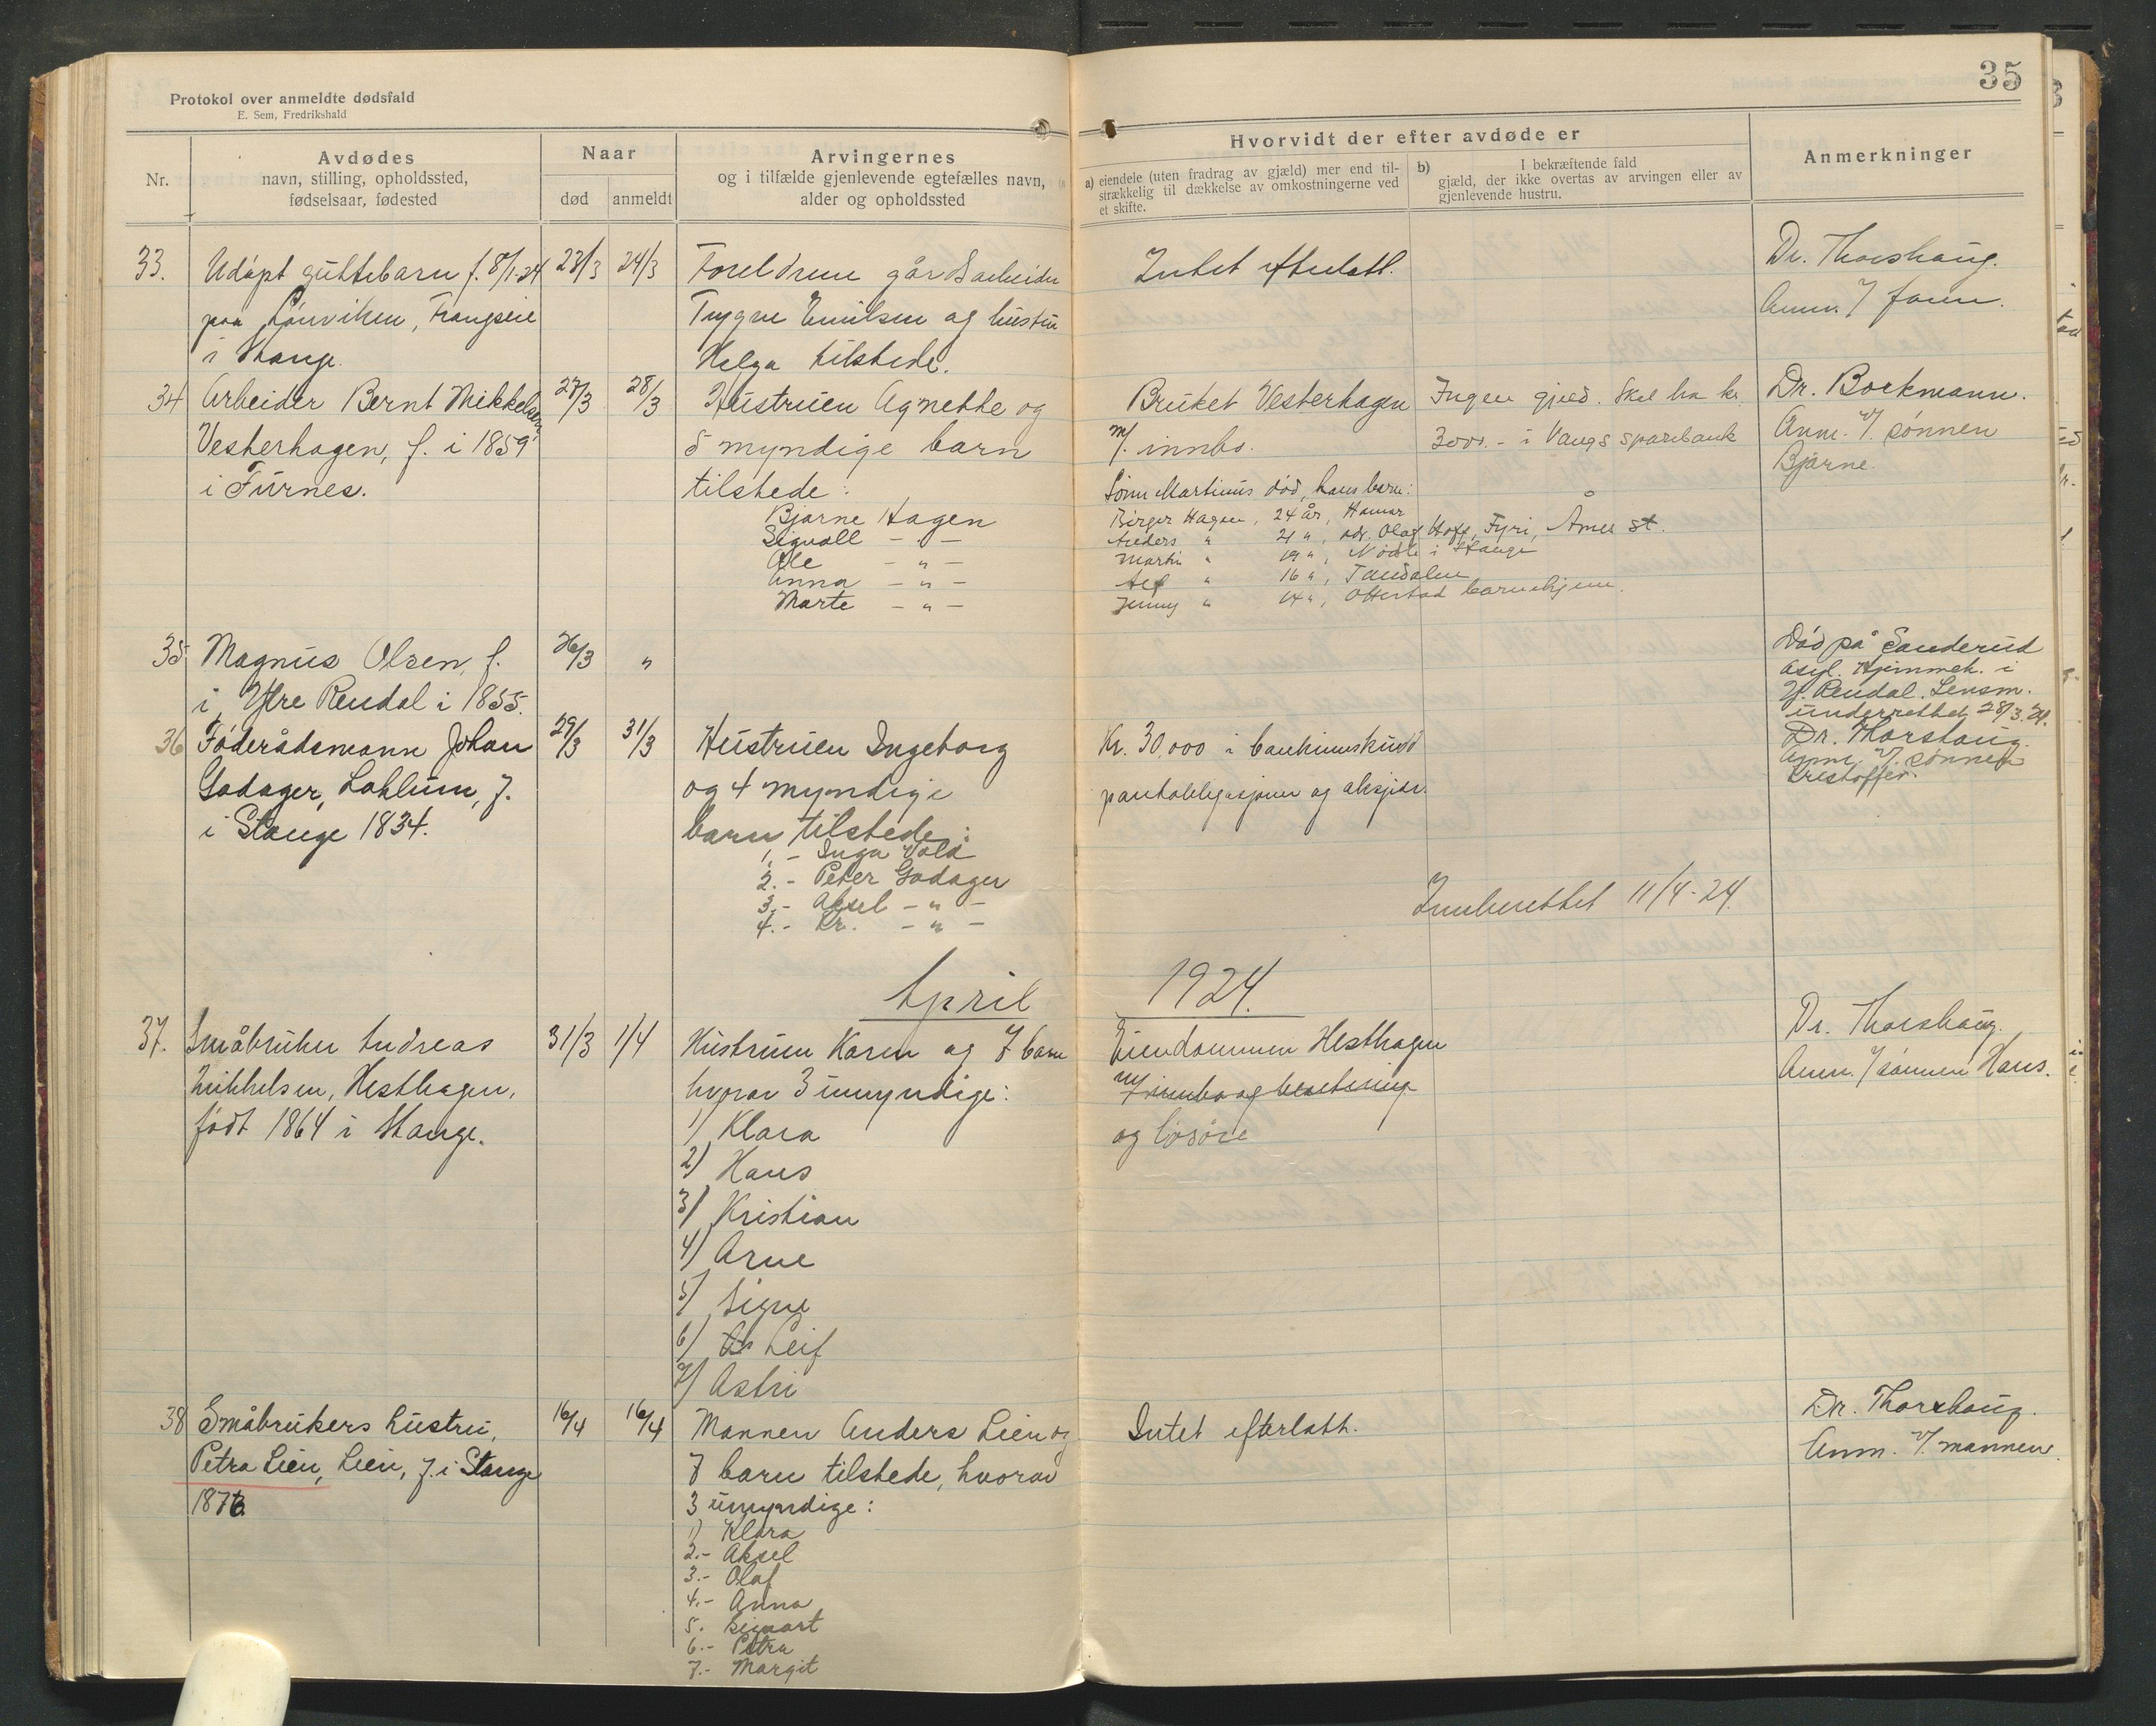 35
Protokol over anmeldte dødsfald
E. Sem, Fredrikshald
Nr.
Avdødes
navn, stilling, opholdssted,
fødselsaar, fødested
Naar
død
anmeldt
Arvingernes
og i tilfælde gjenlevende egtefælles navn,
alder og opholdssted
Hvorvidt der efter avdøde er
a) eiendele (uten fradrag av gjæld) mer end til-
strækkelig til dækkelse av omkostningerne ved
et skifte.
b) I bekræftende fald
gjæld, der ikke overtas av arvingen eller av
gjenlevende hustru.
Anmerkninger
33.
Udøpt guttebarn f. 8/1-24
paa
i Stange.
23/3
24/3
Foreldrene gårdsarbeider
Trygve Emilsen og hustru
Helga tilstede.
Intet efterlatt.
Dr. Thorshaug.
Anm. /
34
Arbeider Bernt Mikkelsen
Vesterhagen, f. i 1859
i Furnes.
27/3
28/3
Hustruen Agnethe og
5 myndige barn
tilstede:
Bjarne Hagen
Sigvall - " -
Ole - " -
Anna - " -
Marte - " -
Bruket Vesterhagen
m/. innbo.
Sønn Martinus død, hans barn:
Birger Hagen, 24 år, Hamar
Anders " 21 ", adr. Olaf Hoff, Fyri, Åmes st.
Martin " 19 ", i Stange
" 16 ",
Jenny " 14 ", Ottestad barnehjem.
Ingen gjeld. Skal ha kr.
3000.- i Vangs sparebank
Dr. Bockmann.
Anm. v/. sønnen
Bjarne.
35
Magnus Olsen, f.
i Ytre Rendal i 1855.
26/3
"
Død på Sanderud
asyl. Hjemmeh. i
Y. Rendal. Lensm.
underrettet 28/3.24.
36
Føderådsmann Johan
Godager, Lohlum, f.
i Stange 1834.
29/3
31/3
Hustruen Ingeborg
og 4 myndige
barn tilstede:
1.- Inga Vold
2.- Peter Godager
3.- Aksel - " -
4.- Kr. - " -
Kr. 30,000 i bankinnskudd
pantobligasjoner og aksjer.
Dr. Thorshaug.
Anm. v/. sønnen
Kristoffer.
Innberettet 11/4-24.
April 1924.
37.
Småbruker Andreas
Mikkelsen, Hesthagen,
født 1864 i Stange.
31/3
1/4
Hustruen Karen og 7 barn
hvorav 3 umyndige:
1) Klara
2) Hans
3) Kristian
4) Arne
5) Signe
6) Leif
7) Astri
Eiendommen Hesthagen
m/ innbo og besetning
og løsøre
Dr. Thorshaug.
Anm. / sønnen Hans.
38
Småbrukers hustru,
Petra Lien, Lien, f. i Stange
1876
16/4
16/4
Mannen Anders Lien og
7 barn tilstede, hvorav
3 umyndige:
1) Klara
2.- Aksel
3.- Olaf
4.- Anna
5.
6.- Petra
7.- Margit
Intet efterlatt.
Dr. Thorshaug.
Anm. v/. mannen.